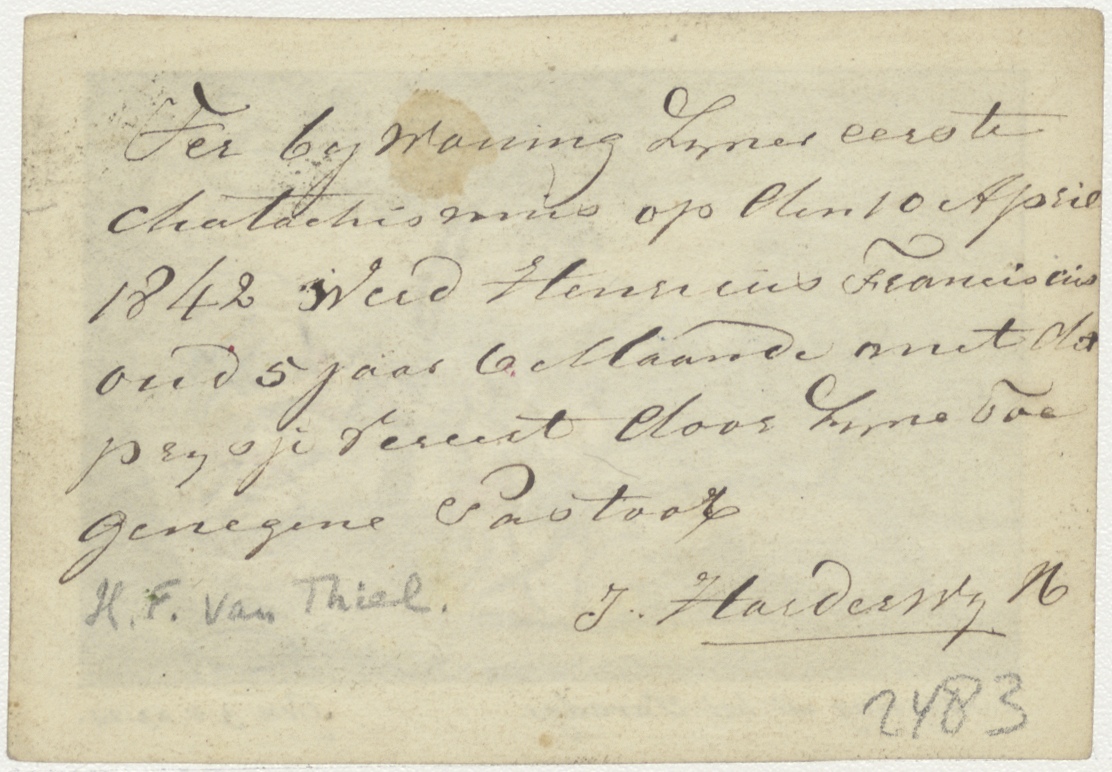 Ter by woning Zyner eerste
chatachismus op den 10 April
1842 Werd Henricus Franciscus
oud 5 jaar 6 Maande met dit
prysje vereert door Zyne Toe
genegene Pastoor
J. Harderwyk
H. F. van Thiel.
2483